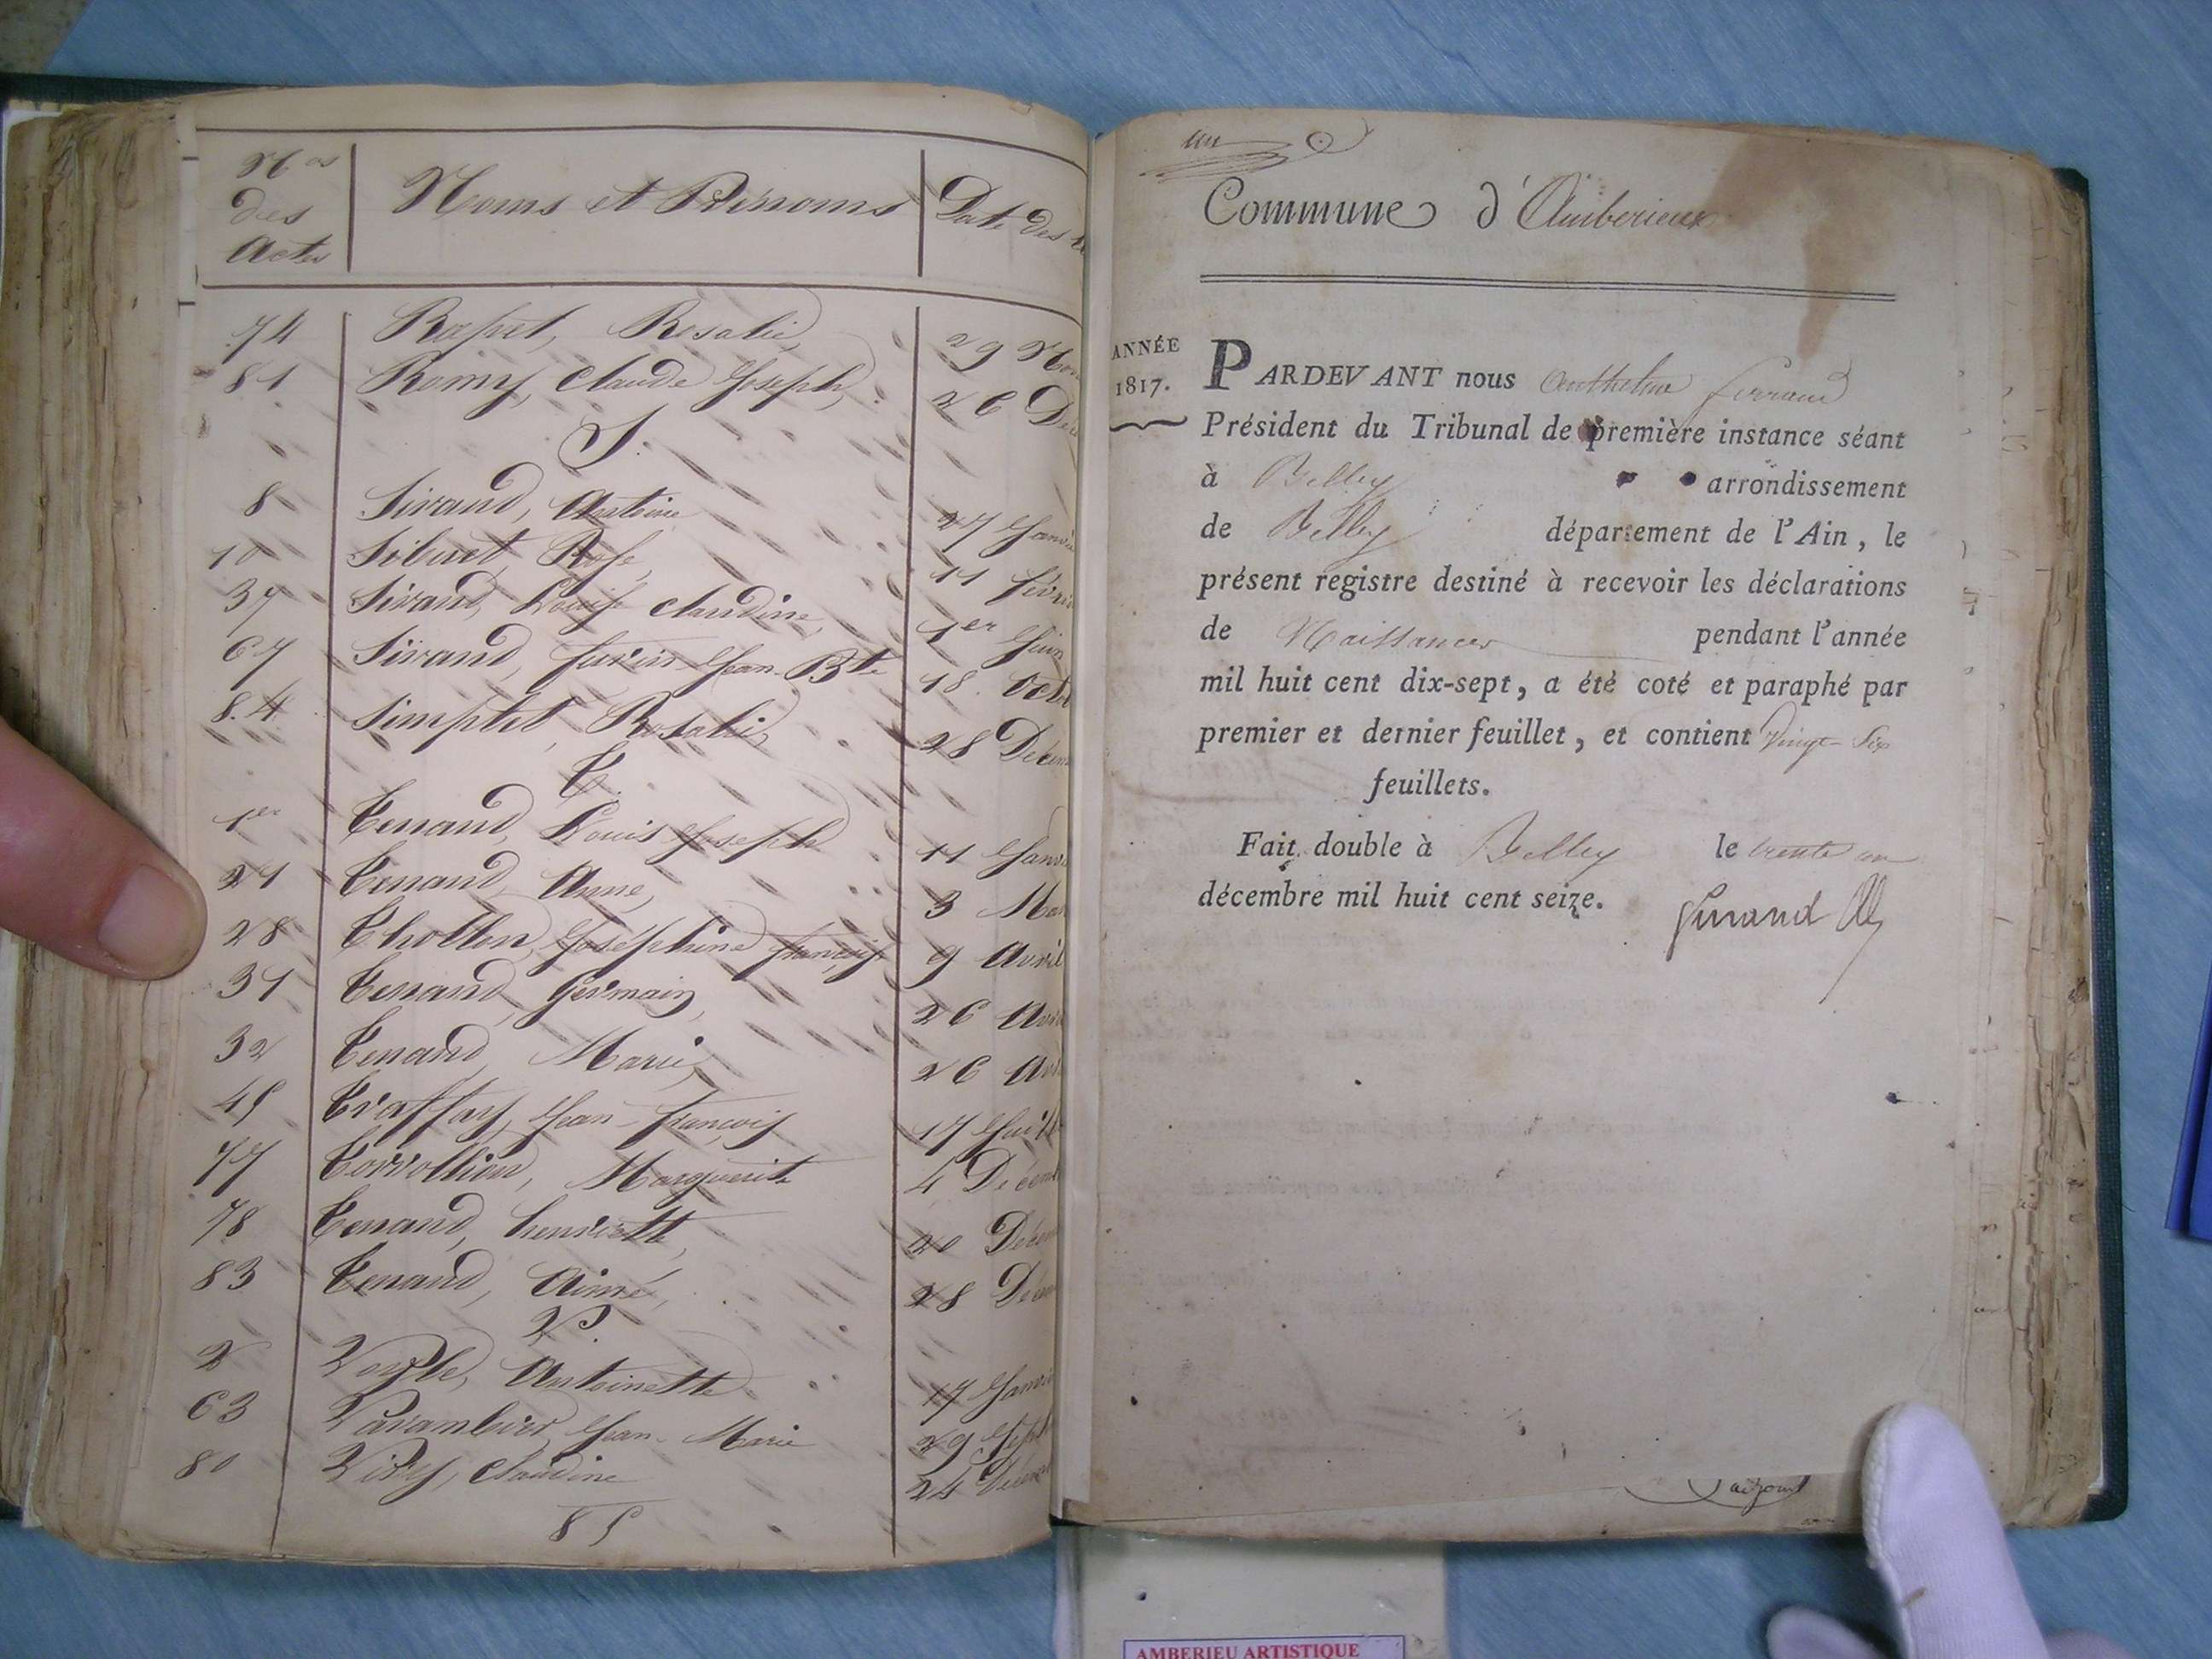 Nos
des
Actes
Noms et Prénoms
Date des
74 Rapet, Rosalie, 29 Nov
81 Romy, Claude Joseph, 26 Dé
S.
8 Sirand, Antoine 27 Janvi
10 Sibuet, Rose, 11 févri
37 Sirand, Louise Claudine, 1er Juin
67 Sirand, Jean-Bte 18 Octo
84 Simplet, Rosalie, 28 Décem
T.
1er Tenand, Louis Joseph 11 Janv
21 Tenand, Anne, 3 Mar
28 Thollon, Joséphine françoise 9 Avril
31 Tenand, Germain, 26 Avri
32 Tenand, Marie, 26 Avr
45 Traffay, Jean-françois 17 Juill
77 Marguerite 4 Décem
78 Tenand, henriette, 20 Décem
83 Tenand, Aimé, 28 Décem
V.
2 Antoinette 17 Janvi
63 Varambier, Jean-Marie 29 Sept
80 Viry, Claudine 24 Décem
85
un
Commune d'Amberieux
ANNÉE
1817.
PARDEVANT nous Anthelme ferrand
Président du Tribunal de première instance séant
à Belley arrondissement
de Belley département de l'Ain, le
présent registre destiné à recevoir les déclarations
de Naissances pendant l'année
mil huit cent dix-sept, a été coté et paraphé par
premier et dernier feuillet, et contient Vingt-Six
feuillets.
Fait double à Belley le trente un
décembre mil huit cent seize.
AMBERIEU ARTISTIQUE